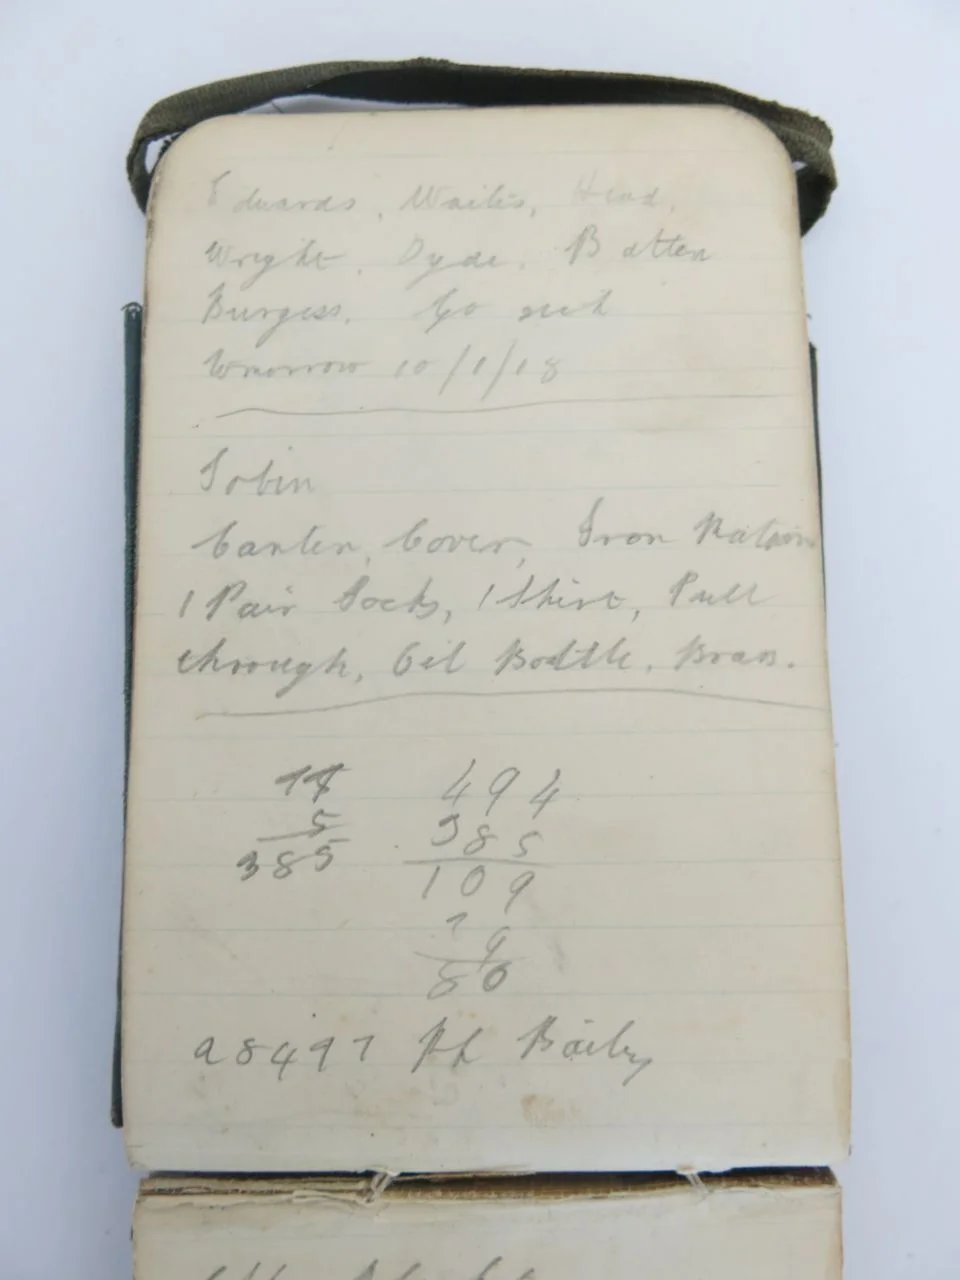 Edwards, Waites, Head,
Wright, Dyde, Batten
Burgess. Go sick
tomorrow 10/1/18
Tobin
Canten, Cover, Iron Rations
1 Pair Socks, 1 Shirt, Pull
through, Oil Bottle, Brass.
77 494
5 385
385 109
80
28497 Bailey